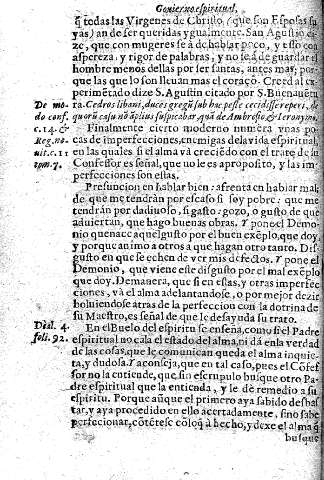 Gouierno espiritual,
q̃ todas las Virgenes de Christo (que son Esposas su
yas) an de ser queridas ygualmente. San Agustin di
ze, que con mugeres se à de hablar poco, y esso con
aspereza, y rigor de palabras, y no se à de guardar el
hombre menos dellas por ser santas, antes mas; por-
que las que lo son lleuan mas el coraçõ. Creed al ex
perimẽtado dize S. Agustin citado por S. Buenauẽtu
De mo- ra. Cedros libani, duces gregũ sub hac peste cecidisse reperi, de
do conf. quorũ casu nõ aplius suspicabar, quã de Ambrosio & Ieronymo.
c. 14. & Finalmente cierto moderno numera vnas po
Reg. no- cas de imperfecciones, enemigas de la vida espiritual,
uit. c. 11 en las quales si el alma và creciẽdo con el trato de su
tom. 7. Confessor es señal, que no le es aproposito, y las im-
perfecciones son estas.
Presuncion en hablar bien: afrenta en hablar mal;
de que me tendràn por escaso si soy pobre: que me
tendràn por dadiuoso, si gasto: gozo, o gusto de que
aduiertan, que hago buenas obras. Y pone el Demo
nio que nace aquel gusto por el buen exẽplo, que doy,
y porque animo a otros a que hagan otro tanto. Dis
gusto en que se echen de ver mis defectos. Y pone el
Demonio, que viene este disgusto por el mal exẽplo
que doy. Demanera, que si en estas, y otras imperfec
ciones, và el alma adelantandose, o por mejor dezir
boluiendose atras de la perfeccion con la dotrina de
su Maestro, es señal de que le desayuda su trato.
Dial. 4. En el Buelo del espiritu se enseña, como si el Padre
foli. 92. espiritual no cala el estado del alma, ni dà en la verdad
de las cosas, que le comunican queda el alma inquie
ta, y dudosa. Y aconseja, que en tal caso, pues el Cõfes
sor no la entiende, que sin escrupulo busque otro Pa
dre espiritual que la entienda, y le dè remedio a su
espiritu. Porque aũque el primero aya sabido desbas
tar, y aya procedido en ello acertadamente, sino sabe
perfeccionar, cõtẽtese cõ lo q̃ à hecho, y dexe el alma q̃
busque